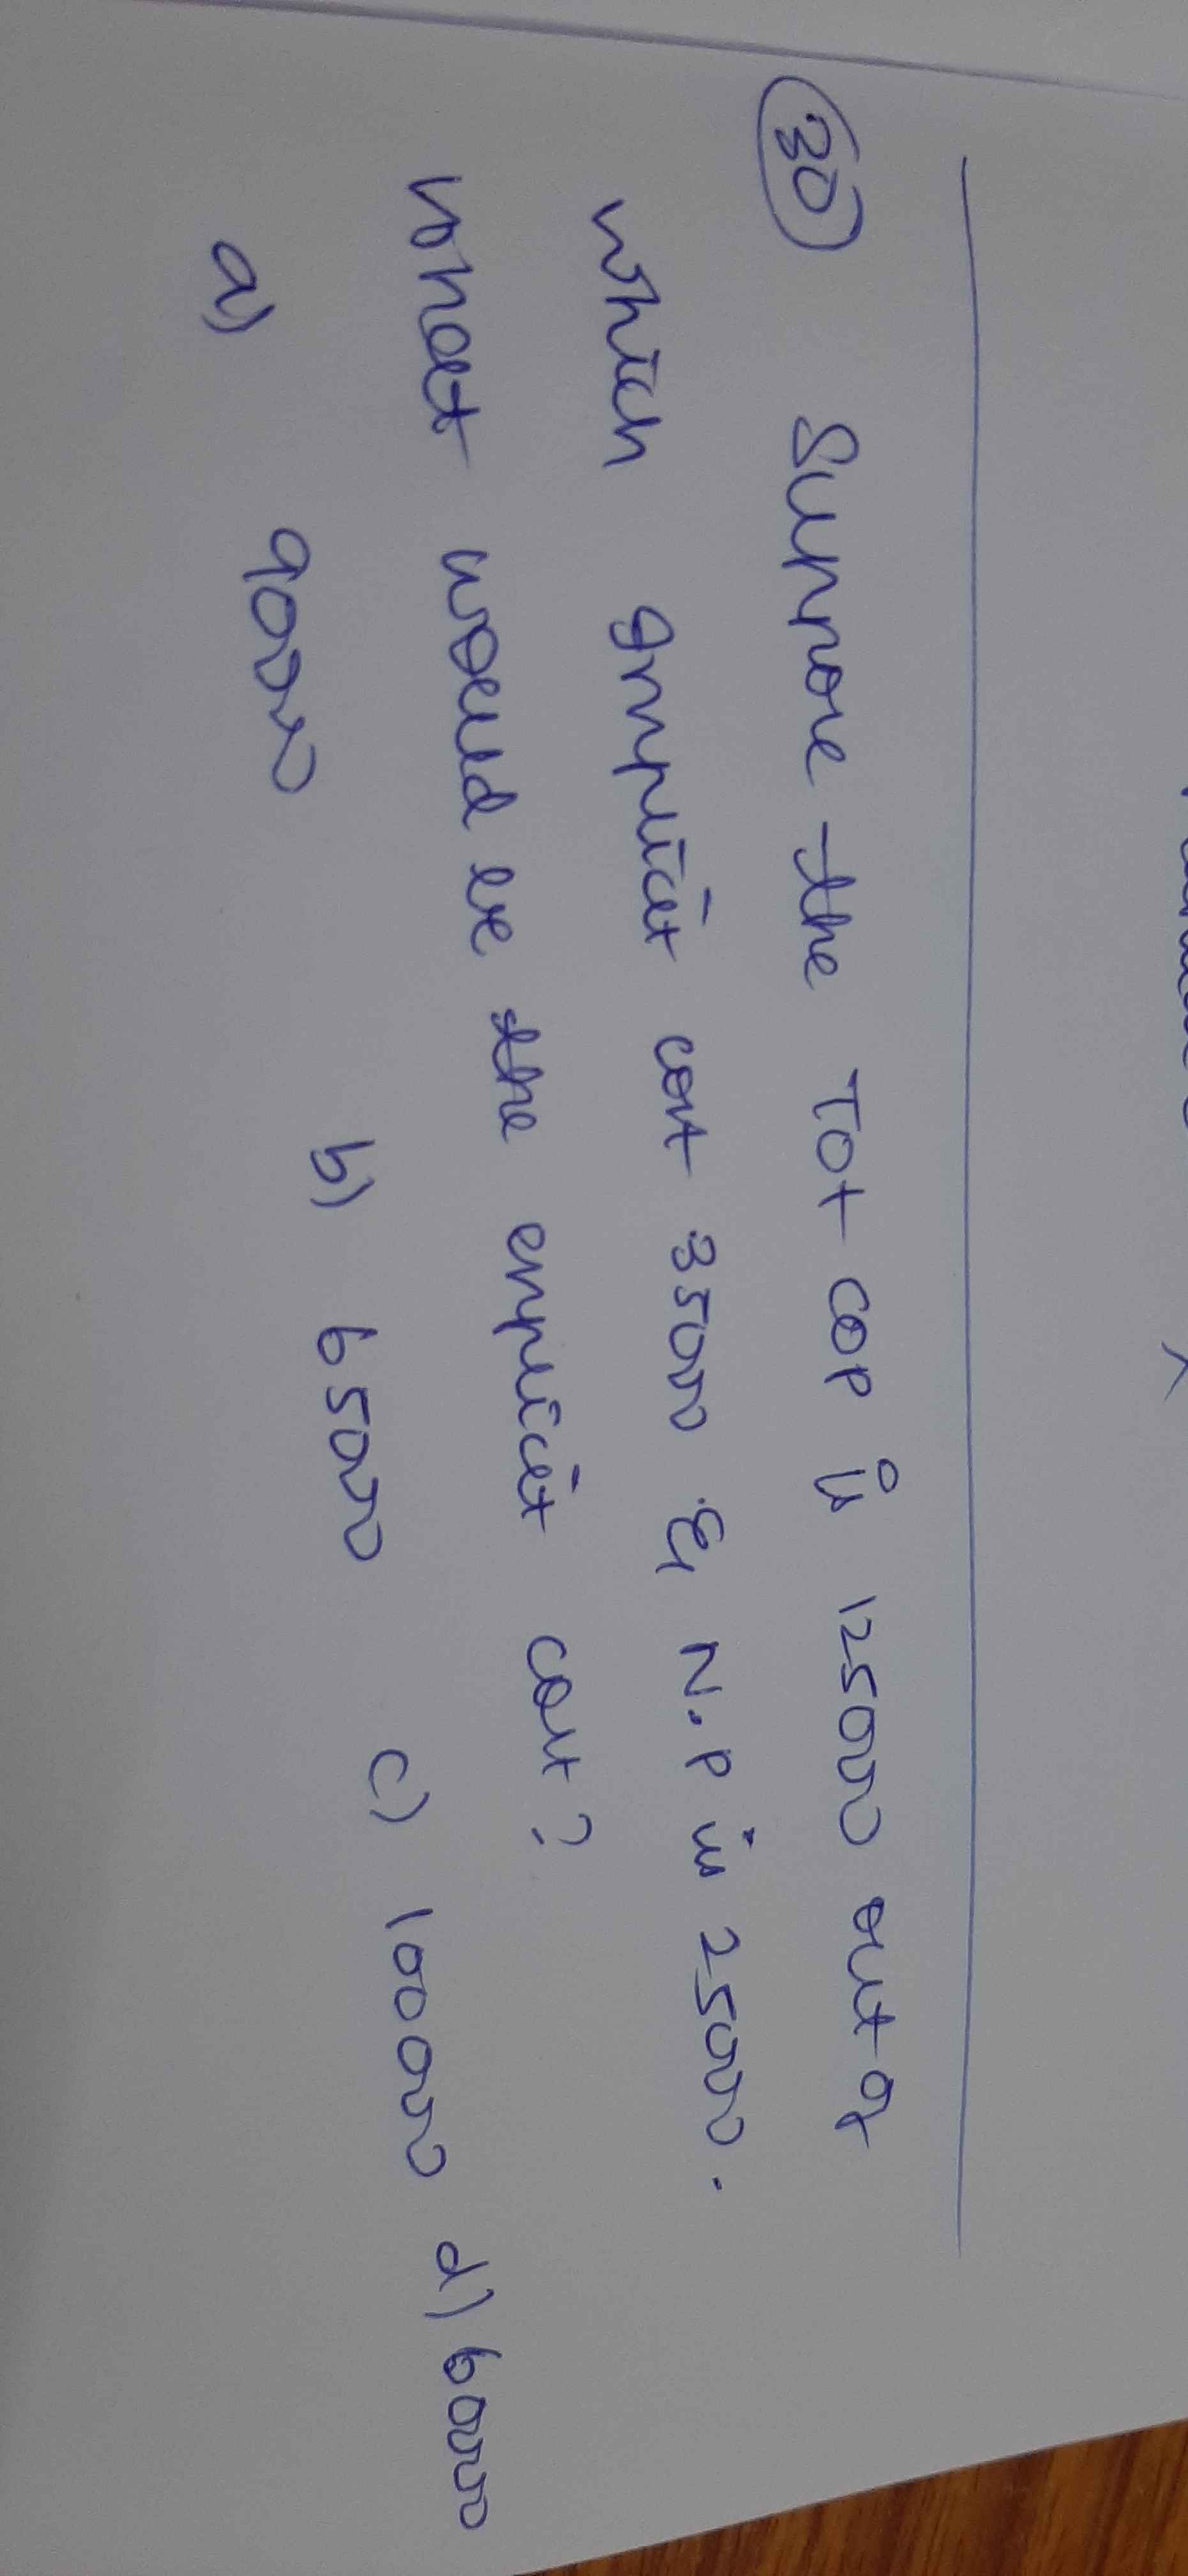 30 Suppose the Tot COP is 125000 out of
which Implicit cost 35000 & N.P is 25000.
what would be the explicit cost?
a) 90000 b) 65000 c) 100000 d) 60000